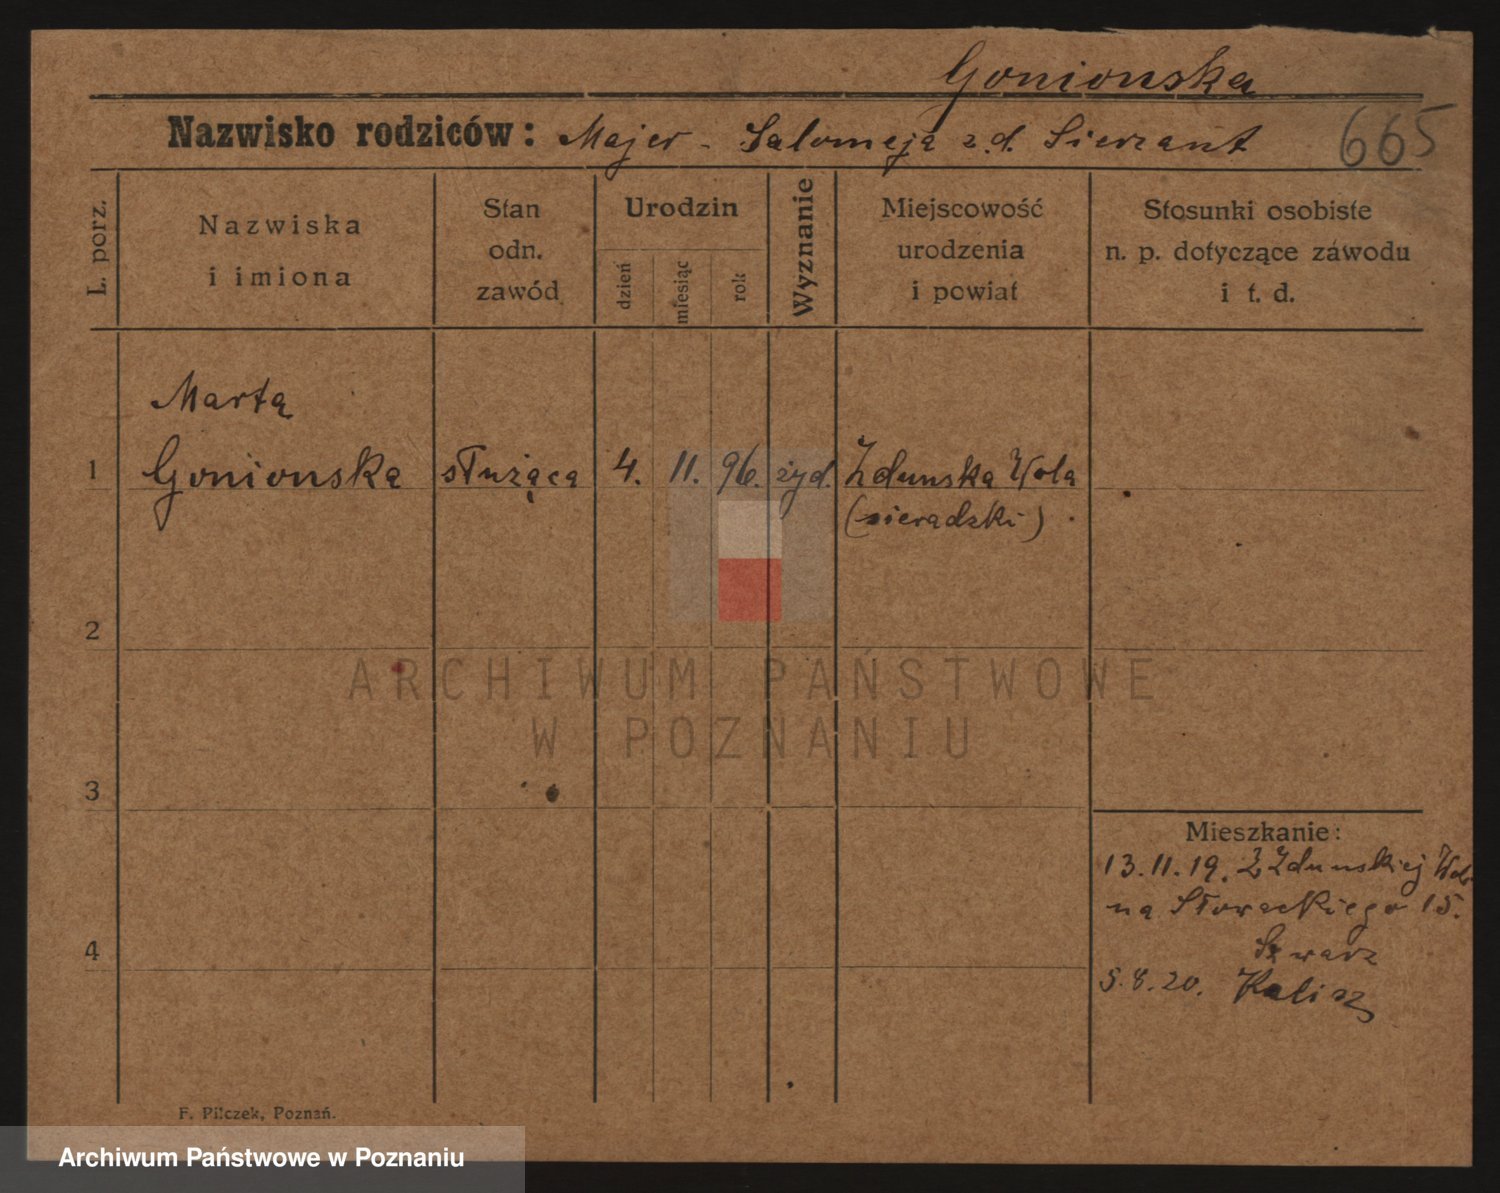 Gonionska
Nazwisko rodziców: Majer - Salomeja z.d. Sieszant
665
L. porz.
Nazwiska
i imiona
Stan
odn.
zawód
Urodzin
dzień
miesiąc
rok
Wyznanie
Miejscowość
urodzenia
i powiat
Stosunki osobiste
n. p. dotyczące zawodu
i t. d.
Marta
1 Gonionska służąca 4. 11. 96. żyd. Zdunska Wola
(sieradzki)
2
ARCHIWUM PAŃSTWOWE
W POZNANIU
3
Mieszkanie:
13.11.19. Z Zdunskiej Wol
na Słowackiego 15.
Szwarz
4
5.8.20. Kalisz
F. Pilczek, Poznań.
Archiwum Państwowe w Poznaniu